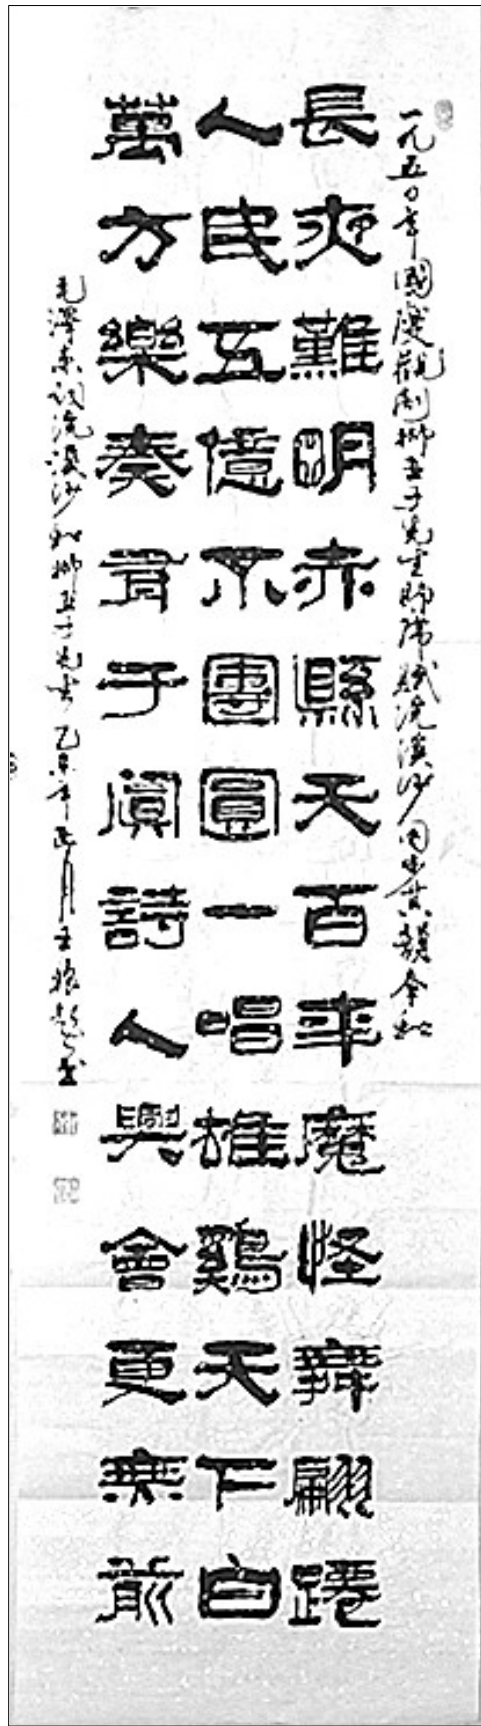 一九五〇年國慶觀劇柳亞子先生即席賦浣溪沙因步其韻奉和
長夜難明赤縣天百年魔怪舞翩躚
人民五億不團圓一唱雄鷄天下白
萬方樂奏有于闐詩人興會更無前
毛澤東詞浣溪沙和柳亞子先生乙亥年正月王振